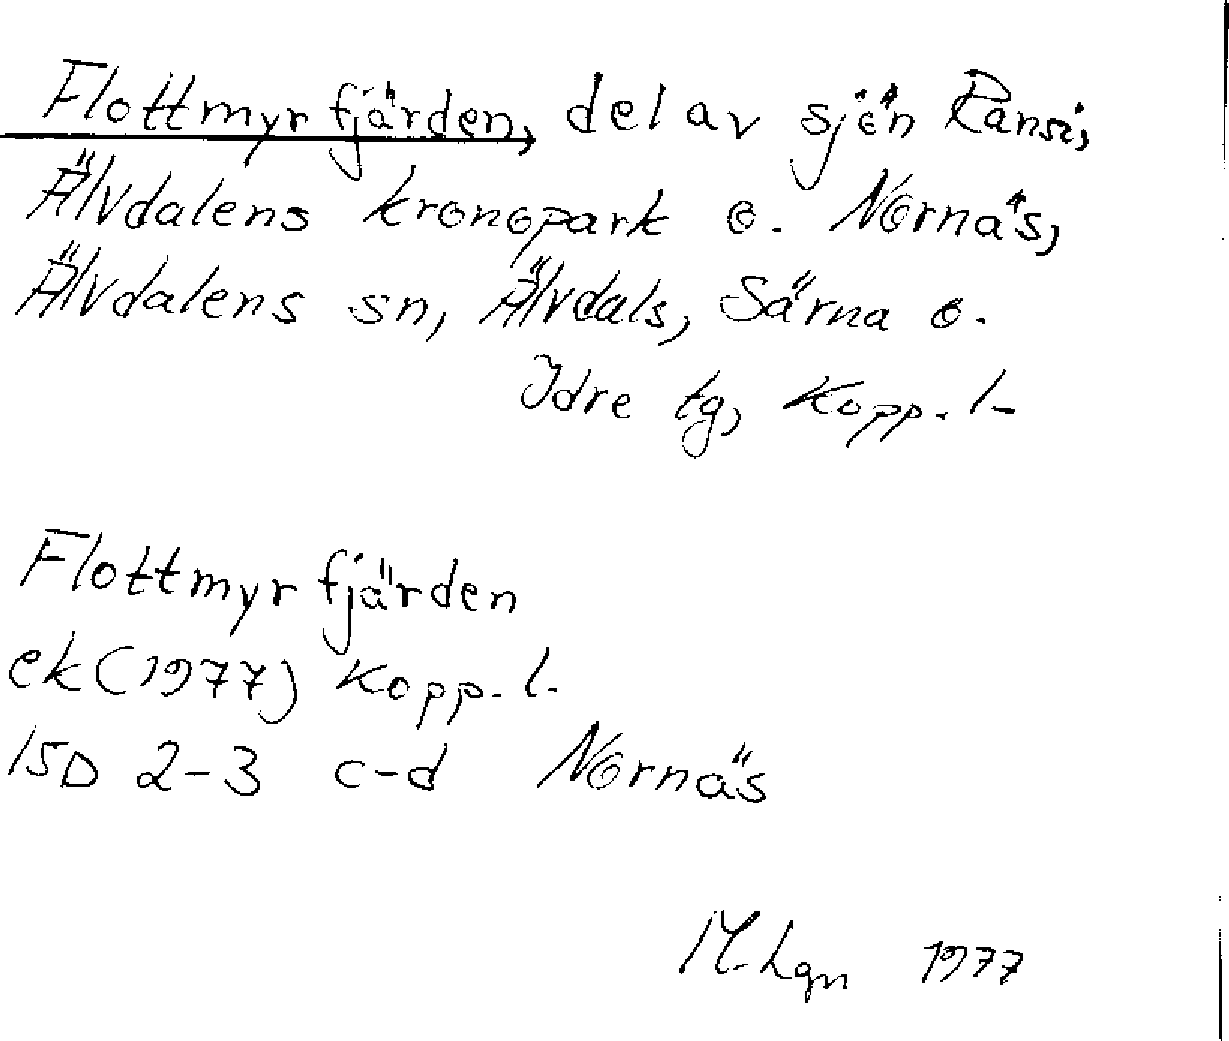 Flottmyrfjärden, del av sjön Ransi,
Älvdalens kronopark o. Nornäs,
Älvdalens sn, Älvdals, Särna o.
Idre tg, Kopp. l-
Flottmyrfjärden
ek (1977) Kopp. l.
15D 2-3 c-d Nornäs
M. Lgn 1977